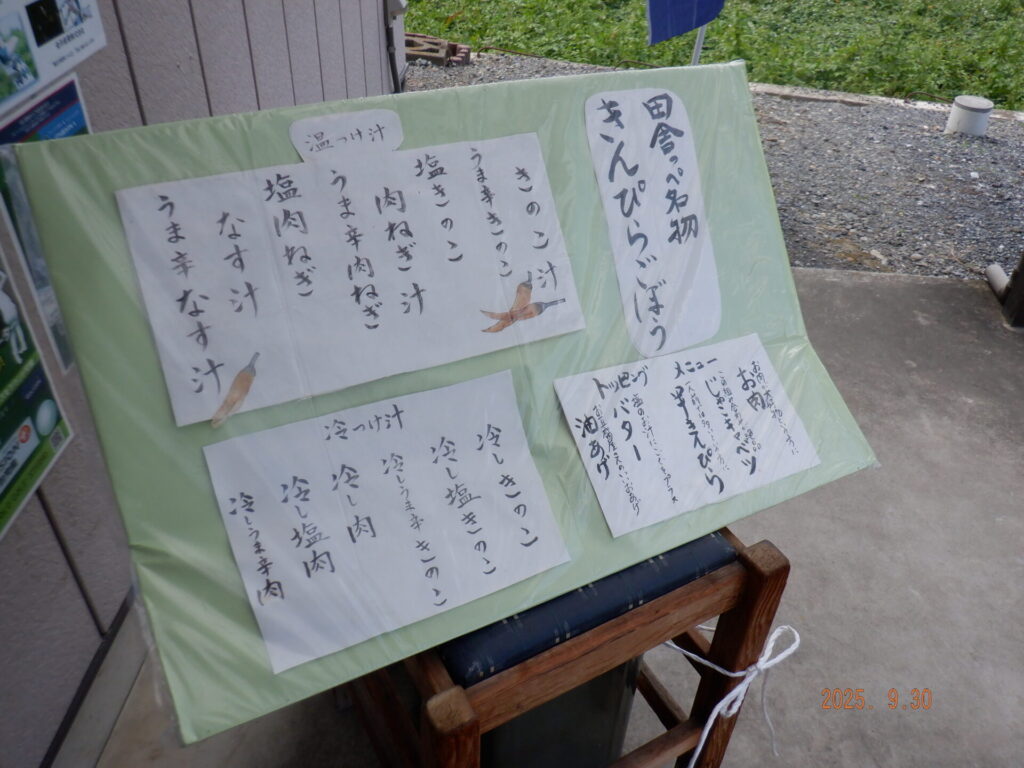 田舎っぺ名物
きんぴらごぼう
温つけ汁
きのこ汁
うま辛きのこ
塩きのこ
肉ねぎ汁
うま辛肉ねぎ
塩肉ねぎ
なす汁
うま辛なす汁
冷つけ汁
冷しきのこ
冷し塩きのこ
冷しうま辛きのこ
冷し肉
冷し塩肉
冷しうま辛肉
お肉
キャベツ
メニュー
トッピング
バター
油あげ
2025. 9.30